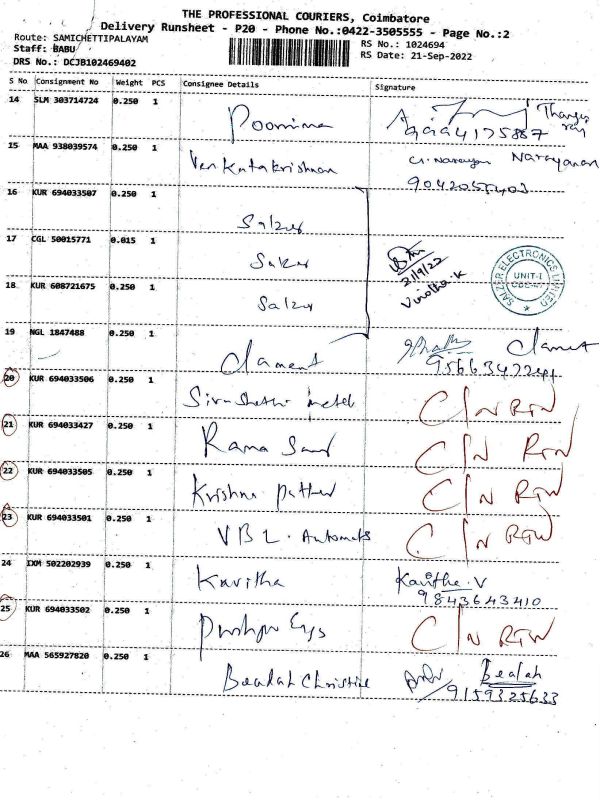 THE PROFESSIONAL COURIERS, Coimbatore
Delivery Runsheet - P20 - Phone No.:0422-3505555 - Page No.:2
Route: SAMICHETTIPALAYAM
RS No.: 1024694
Staff: BABU
RS Date: 21-Sep-2022
DRS No.: DCJB102469402
S No Consignment No Weight PCS Consignee Details Signature
14 SLM 303714724 0.250 1 Poornima
15 MAA 938039574 0.250 1 Venkatakrishnan Narayanan
16 KUR 694033507 0.250 1 Salzer
17 CGL 50015771 0.015 1 Salzer
21/9/22
SALZER ELECTRONICS LIMITED
UNIT-I
18 KUR 608721675 0.250 1 Salzer
19 NGL 1847488 0.250 1 Clament Clament
20 KUR 694033506 0.250 1 C/N RTN
21 KUR 694033427 0.250 1 Rama C/N RTN
22 KUR 694033505 0.250 1 Krishna C/N RTN
23 KUR 694033501 0.250 1 C/N RTN
24 IXM 502202939 0.250 1 Kavitha Kavitha.V
9843643410
25 KUR 694033502 0.250 1 C/N RTN
26 MAA 565927820 0.250 1 Bealah Christie Bealah
9159325633